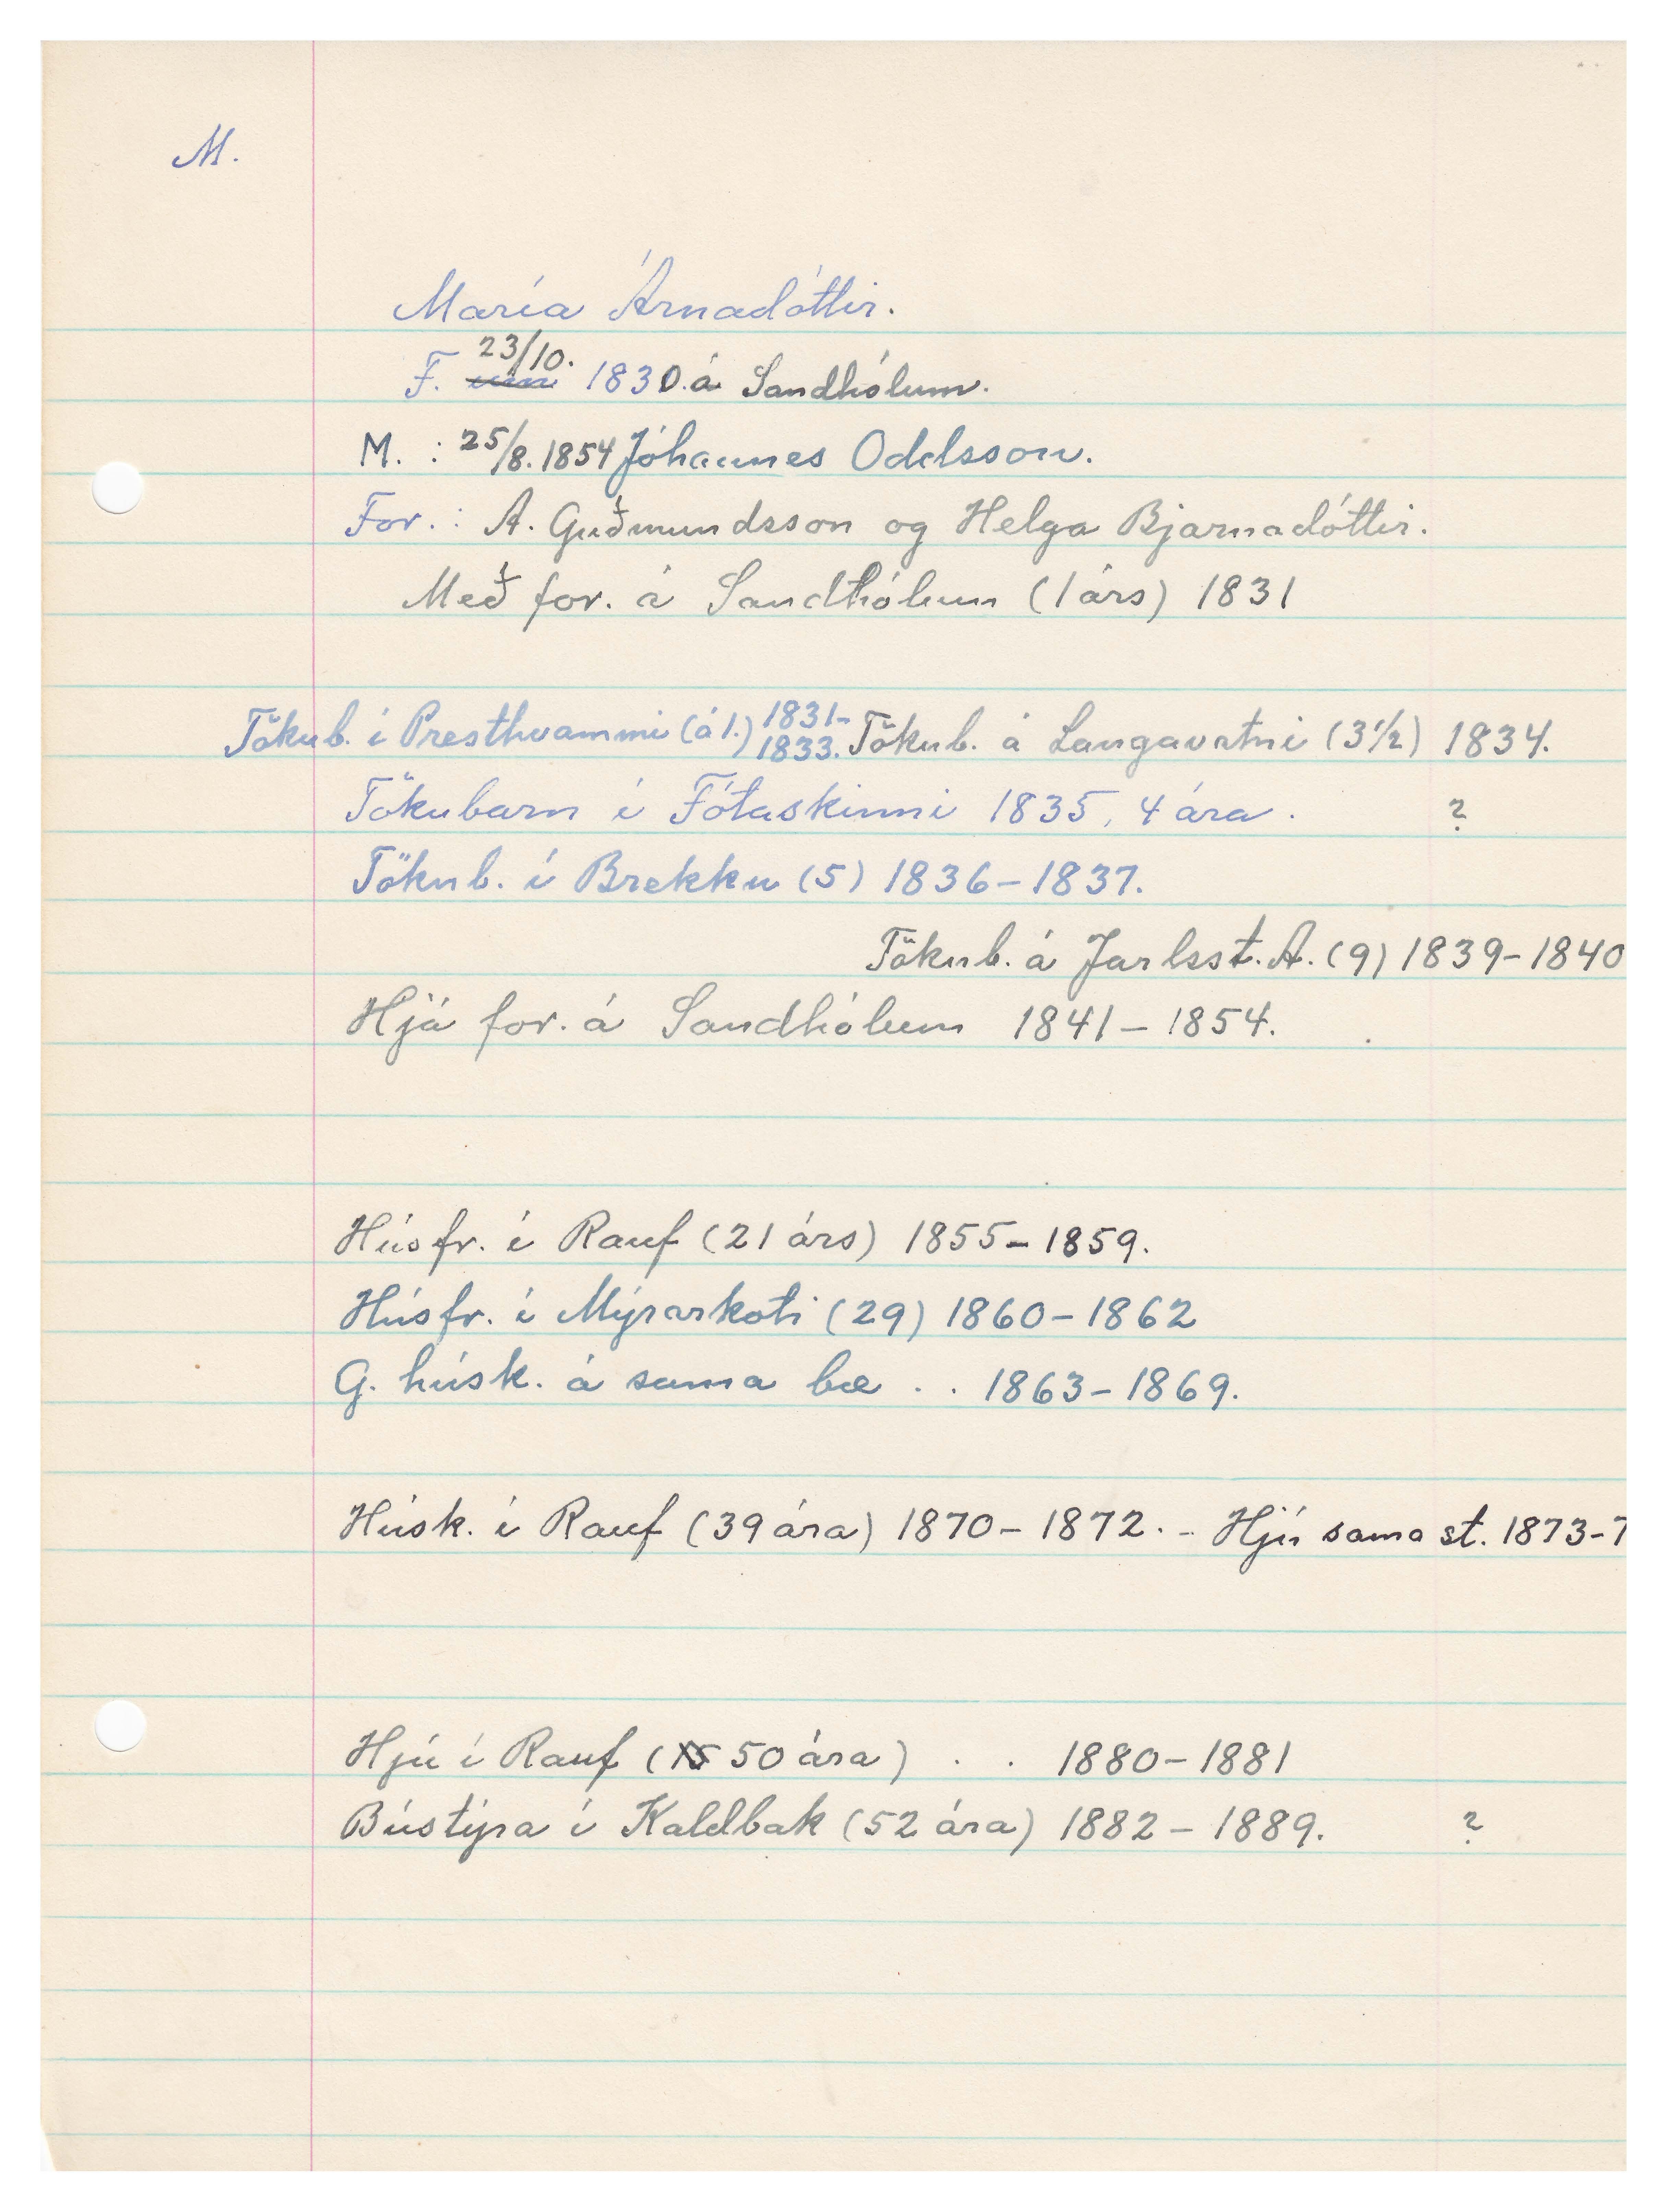 M.
María Árnadóttir.
F. 23/10. 1830 á Sandhólum.
M. : 25/8. 1854 Jóhannes Oddsson.
For. : Á. Guðmundsson og Helga Bjarnadóttir.
Með for. á Sandhólum (1 árs) 1831
Tökub. í Presthvammi (á 1.) 1831-1833. Tökub. á Langavatni (3 1/2) 1834.
Tökubarn í Fótaskinni 1835, 4 ára. ?
Tökub. í Brekku (5) 1836-1837.
Tökub. á Jarlsst. A. (9) 1839-1840
Hjá for. á Sandhólum 1841-1854.
Húsfr. í Rauf (21 árs) 1855-1859.
Húsfr. í Mýrarkoti (29) 1860-1862
G. húsk. á sama bæ . . 1863-1869.
Húsk. í Rauf (39 ára) 1870-1872. - Hjú sama st. 1873-7
Hjú í Rauf (50 ára) . . 1880-1881
Bústýra í Kaldbak (52 ára) 1882-1889. ?